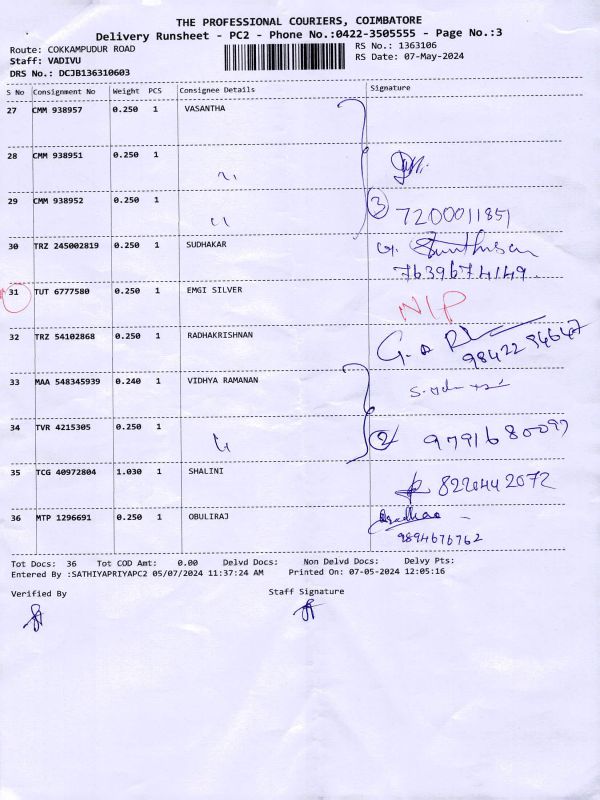 THE PROFESSIONAL COURIERS, COIMBATORE
Delivery Runsheet - PC2 - Phone No.:0422-3505555 - Page No.:3
Route: COKKAMPUDUR ROAD RS No.: 1363106
Staff: VADIVU RS Date: 07-May-2024
DRS No.: DCJB136310603
S No Consignment No Weight PCS Consignee Details Signature
27 CMM 938957 0.250 1 VASANTHA
28 CMM 938951 0.250 1
29 CMM 938952 0.250 1 3 7200011851
30 TRZ 245002819 0.250 1 SUDHAKAR
7639674149
31 TUT 6777580 0.250 1 EMGI SILVER NIP
32 TRZ 54102868 0.250 1 RADHAKRISHNAN
9842294647
33 MAA 548345939 0.240 1 VIDHYA RAMANAN
34 TVR 4215305 0.250 1 2 9791680097
35 TCG 40972804 1.030 1 SHALINI 8220442072
36 MTP 1296691 0.250 1 OBULIRAJ
9894676762
Tot Docs: 36 Tot COD Amt: 0.00 Delvd Docs: Non Delvd Docs: Delvy Pts:
Entered By :SATHIYAPRIYAPC2 05/07/2024 11:37:24 AM Printed On: 07-05-2024 12:05:16
Verified By Staff Signature